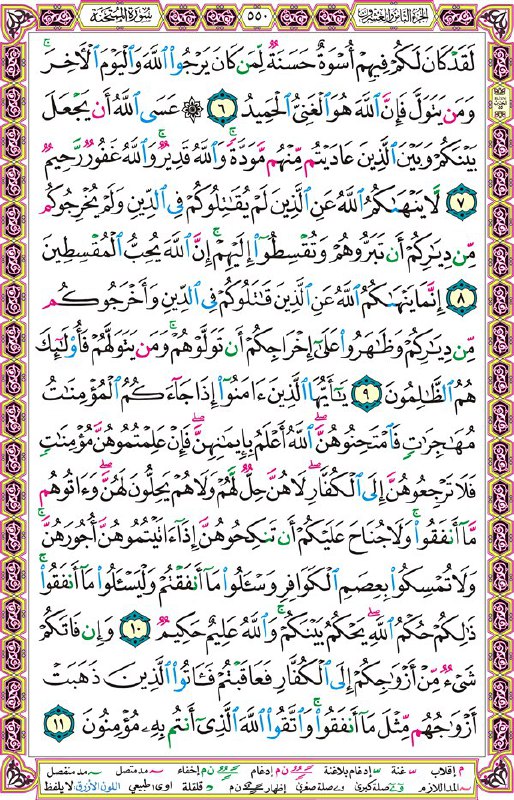 الجزء الثامن والعشرون ٥٥٠ سورة الممتحنة
لَقَدْ كَانَ لَكُمْ فِيهِمْ أُسْوَةٌ حَسَنَةٌ لِّمَن كَانَ يَرْجُوا۟ ٱللَّهَ وَٱلْيَوْمَ ٱلْـَٔاخِرَ ۚ
وَمَن يَتَوَلَّ فَإِنَّ ٱللَّهَ هُوَ ٱلْغَنِىُّ ٱلْحَمِيدُ ٦ ۞ عَسَى ٱللَّهُ أَن يَجْعَلَ
بَيْنَكُمْ وَبَيْنَ ٱلَّذِينَ عَادَيْتُم مِّنْهُم مَّوَدَّةً ۚ وَٱللَّهُ قَدِيرٌ ۚ وَٱللَّهُ غَفُورٌ رَّحِيمٌ
٧ لَّا يَنْهَىٰكُمُ ٱللَّهُ عَنِ ٱلَّذِينَ لَمْ يُقَـٰتِلُوكُمْ فِى ٱلدِّينِ وَلَمْ يُخْرِجُوكُم
مِّن دِيَـٰرِكُمْ أَن تَبَرُّوهُمْ وَتُقْسِطُوٓا۟ إِلَيْهِمْ ۚ إِنَّ ٱللَّهَ يُحِبُّ ٱلْمُقْسِطِينَ
٨ إِنَّمَا يَنْهَىٰكُمُ ٱللَّهُ عَنِ ٱلَّذِينَ قَـٰتَلُوكُمْ فِى ٱلدِّينِ وَأَخْرَجُوكُم
مِّن دِيَـٰرِكُمْ وَظَـٰهَرُوا۟ عَلَىٰٓ إِخْرَاجِكُمْ أَن تَوَلَّوْهُمْ ۚ وَمَن يَتَوَلَّهُمْ فَأُو۟لَـٰٓئِكَ
هُمُ ٱلظَّـٰلِمُونَ ٩ يَـٰٓأَيُّهَا ٱلَّذِينَ ءَامَنُوٓا۟ إِذَا جَآءَكُمُ ٱلْمُؤْمِنَـٰتُ
مُهَـٰجِرَٰتٍ فَٱمْتَحِنُوهُنَّ ۖ ٱللَّهُ أَعْلَمُ بِإِيمَـٰنِهِنَّ ۖ فَإِنْ عَلِمْتُمُوهُنَّ مُؤْمِنَـٰتٍ
فَلَا تَرْجِعُوهُنَّ إِلَى ٱلْكُفَّارِ ۖ لَا هُنَّ حِلٌّ لَّهُمْ وَلَا هُمْ يَحِلُّونَ لَهُنَّ ۖ وَءَاتُوهُم
مَّآ أَنفَقُوا۟ ۚ وَلَا جُنَاحَ عَلَيْكُمْ أَن تَنكِحُوهُنَّ إِذَآ ءَاتَيْتُمُوهُنَّ أُجُورَهُنَّ ۚ
وَلَا تُمْسِكُوا۟ بِعِصَمِ ٱلْكَوَافِرِ وَسْـَٔلُوا۟ مَآ أَنفَقْتُمْ وَلْيَسْـَٔلُوا۟ مَآ أَنفَقُوا۟ ۚ
ذَٰلِكُمْ حُكْمُ ٱللَّهِ ۖ يَحْكُمُ بَيْنَكُمْ ۚ وَٱللَّهُ عَلِيمٌ حَكِيمٌ ١٠ وَإِن فَاتَكُمْ
شَىْءٌ مِّنْ أَزْوَٰجِكُمْ إِلَى ٱلْكُفَّارِ فَعَاقَبْتُمْ فَـَٔاتُوا۟ ٱلَّذِينَ ذَهَبَتْ
أَزْوَٰجُهُم مِّثْلَ مَآ أَنفَقُوا۟ ۚ وَٱتَّقُوا۟ ٱللَّهَ ٱلَّذِىٓ أَنتُم بِهِۦ مُؤْمِنُونَ ١١
م إقلاب غنة إدغام بلاغنة ن م إدغام ن م إخفاء مد متصل مد منفصل
المد اللازم صلة كبرى صلة صغرى إظهار ن م قلقلة اوى طبيعي اللون الأزرق لا يلفظ